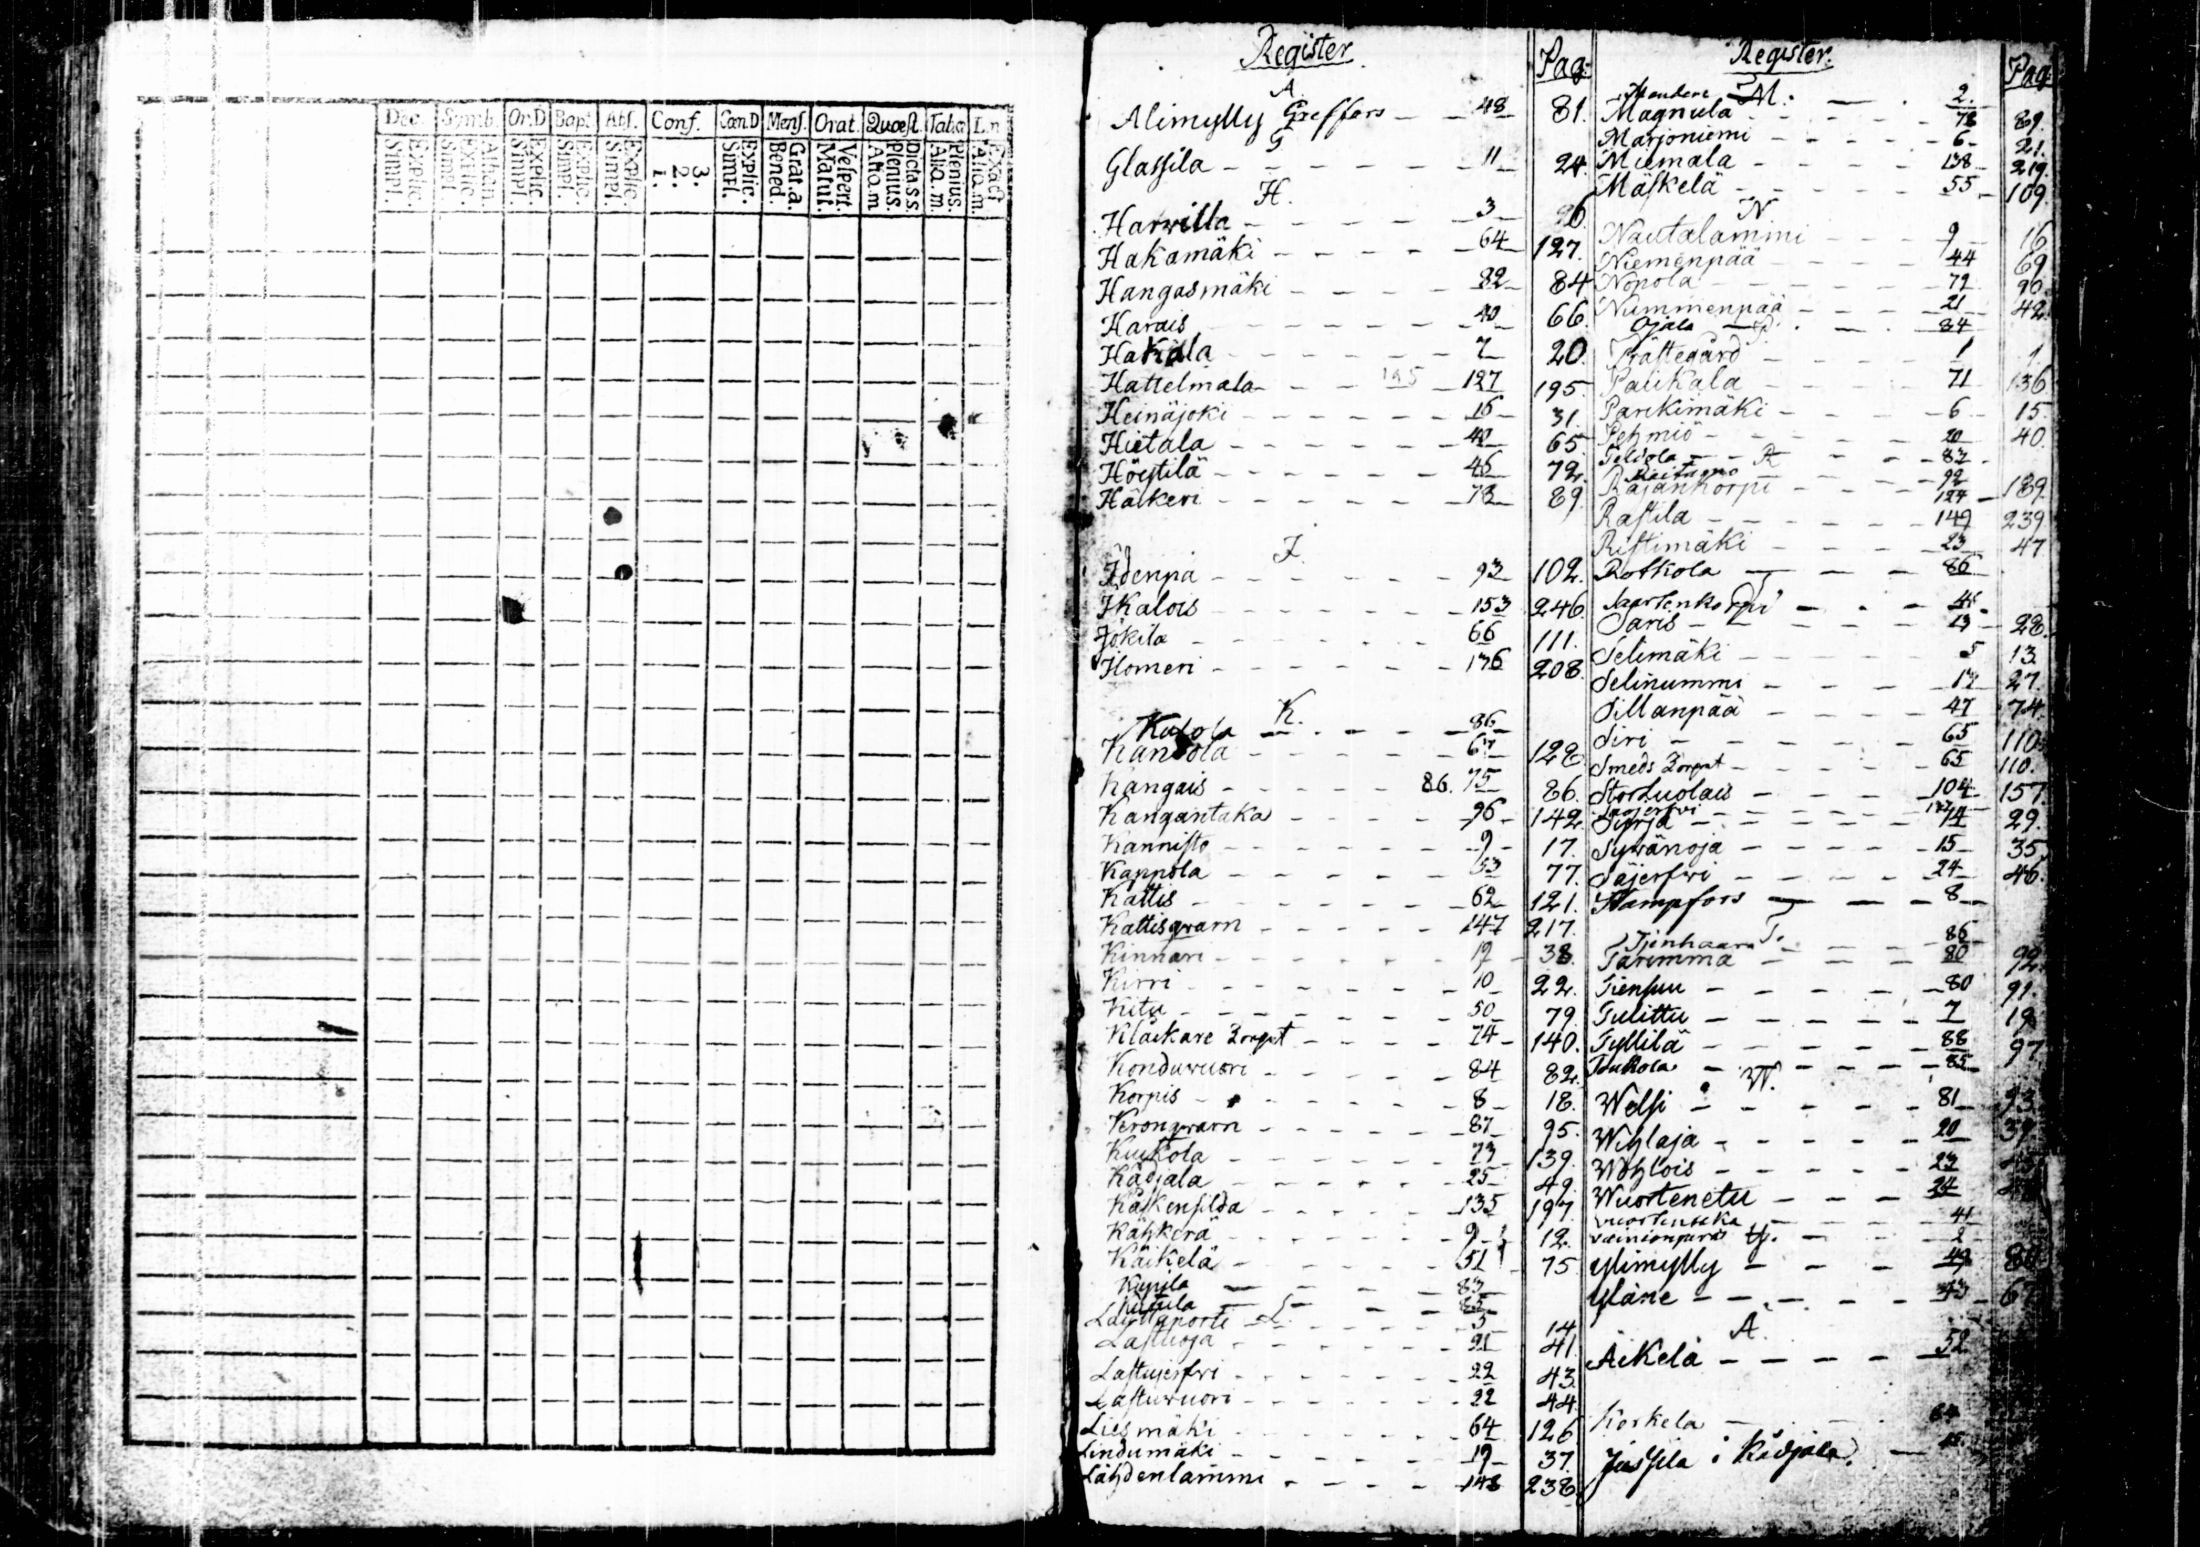 Dec. Symb. Or.D Bapt Abs. Conf. Cœn.D Mens. Orat. Quæst. Tabœ
Explic. Simpl.
Athan. Explic. Simpl.
Explic. Simpl.
Explic. Simpl.
Explic. Simpl.
3. 2. 1.
Explic. Simpl.
Grat.a. Bened.
Vespert. Matut.
Dicta s s. Plenius. Aliq.m
Plenius. Aliq.m.
Exact Aliq.m.
Register Pag:
A.
Alimylly Greffors 48 81.
G
Glassila 11 24
H.
Harwilla 3 26
Hakamäki 64 127.
Hangasmäki 82 84
Harais 40 66
Hakala 7 20
Hattelmala 195 127 195
Heinäjoki 16 31.
Hietala 40 65
Höystilä 46 72.
Hälkeri 78 89
I.
Idenpä 93 102.
Ikalois 153 246
Jokila 66 111.
Ilomeri 136 208.
K.
Kukola 86
Kandola 67 128
Kangais 86. 75 86.
Kangantaka 96 142
Kannisto 9 17.
Kappola 53 77.
Kattis 62 121.
Kattisqwarn 147 217.
Kinnari 19 38.
Kirri 10 22.
Kitu 50 79
Kläckare Torpet 74 140.
Konduwuori 84 82.
Korpis 8 18.
Kerongwarn 87 95.
Kuykola 73 139.
Kädjala 25 49
Käskensilda 135 197
Kähkerä 9 12.
Käikelä 51 75
Kujala 83
L.
Läyttäporti 5 14
Lastuoja 21 41.
Lastujerfwi 22 43
Lastuwuori 22 44
Liesmäki 64 126
Lindumäki 19 37.
Lähdenlammi 148 238
Register. Pag:
M. 2.
Magnula 78 89.
Marjoniemi 6 21.
Miemala 138 219.
Mäskelä 55 109.
N
Nautalammi 9 16
Niemenpää 44 69
Nopola 79 90.
Nummenpää 21 42.
Ojala 84
P.
Prästegård 1 1
Paukala 71 136
Parikimäki 6 15
Pehmiö 20 40.
Peldola 87
R
92
Rajankorpi 124 189.
Rastila 149 239
Ristimäki 23 47
Rotkola 86
Saartenkorpi 41.
Saris 13 28.
Selimäki 5 13
Selinummi 17 27.
Sillanpää 47 74.
Siri 65 110
Smeds Torpet 65 110.
Storluolais 104 157.
Syrjä 14 29.
Sywänoja 15 35
Säjerfwi 24 46.
Stampfors 8
T.
Tjenhaara 86
Tarimma 80 92.
Tiensuu 80 91.
Tulittu 7 19
Tyllilä 88 97
Toukola 85
W.
Welsi 81 93
Wihlaja 20 39
Wohlois 23
Wuortenetu 24
Wuortentaka 41
Wainionperä 2
Y.
Ylimylly 49 80
Yläne 43 67
Ä.
Äikelä 52
Korkela 64
Jussila i Kädjala.